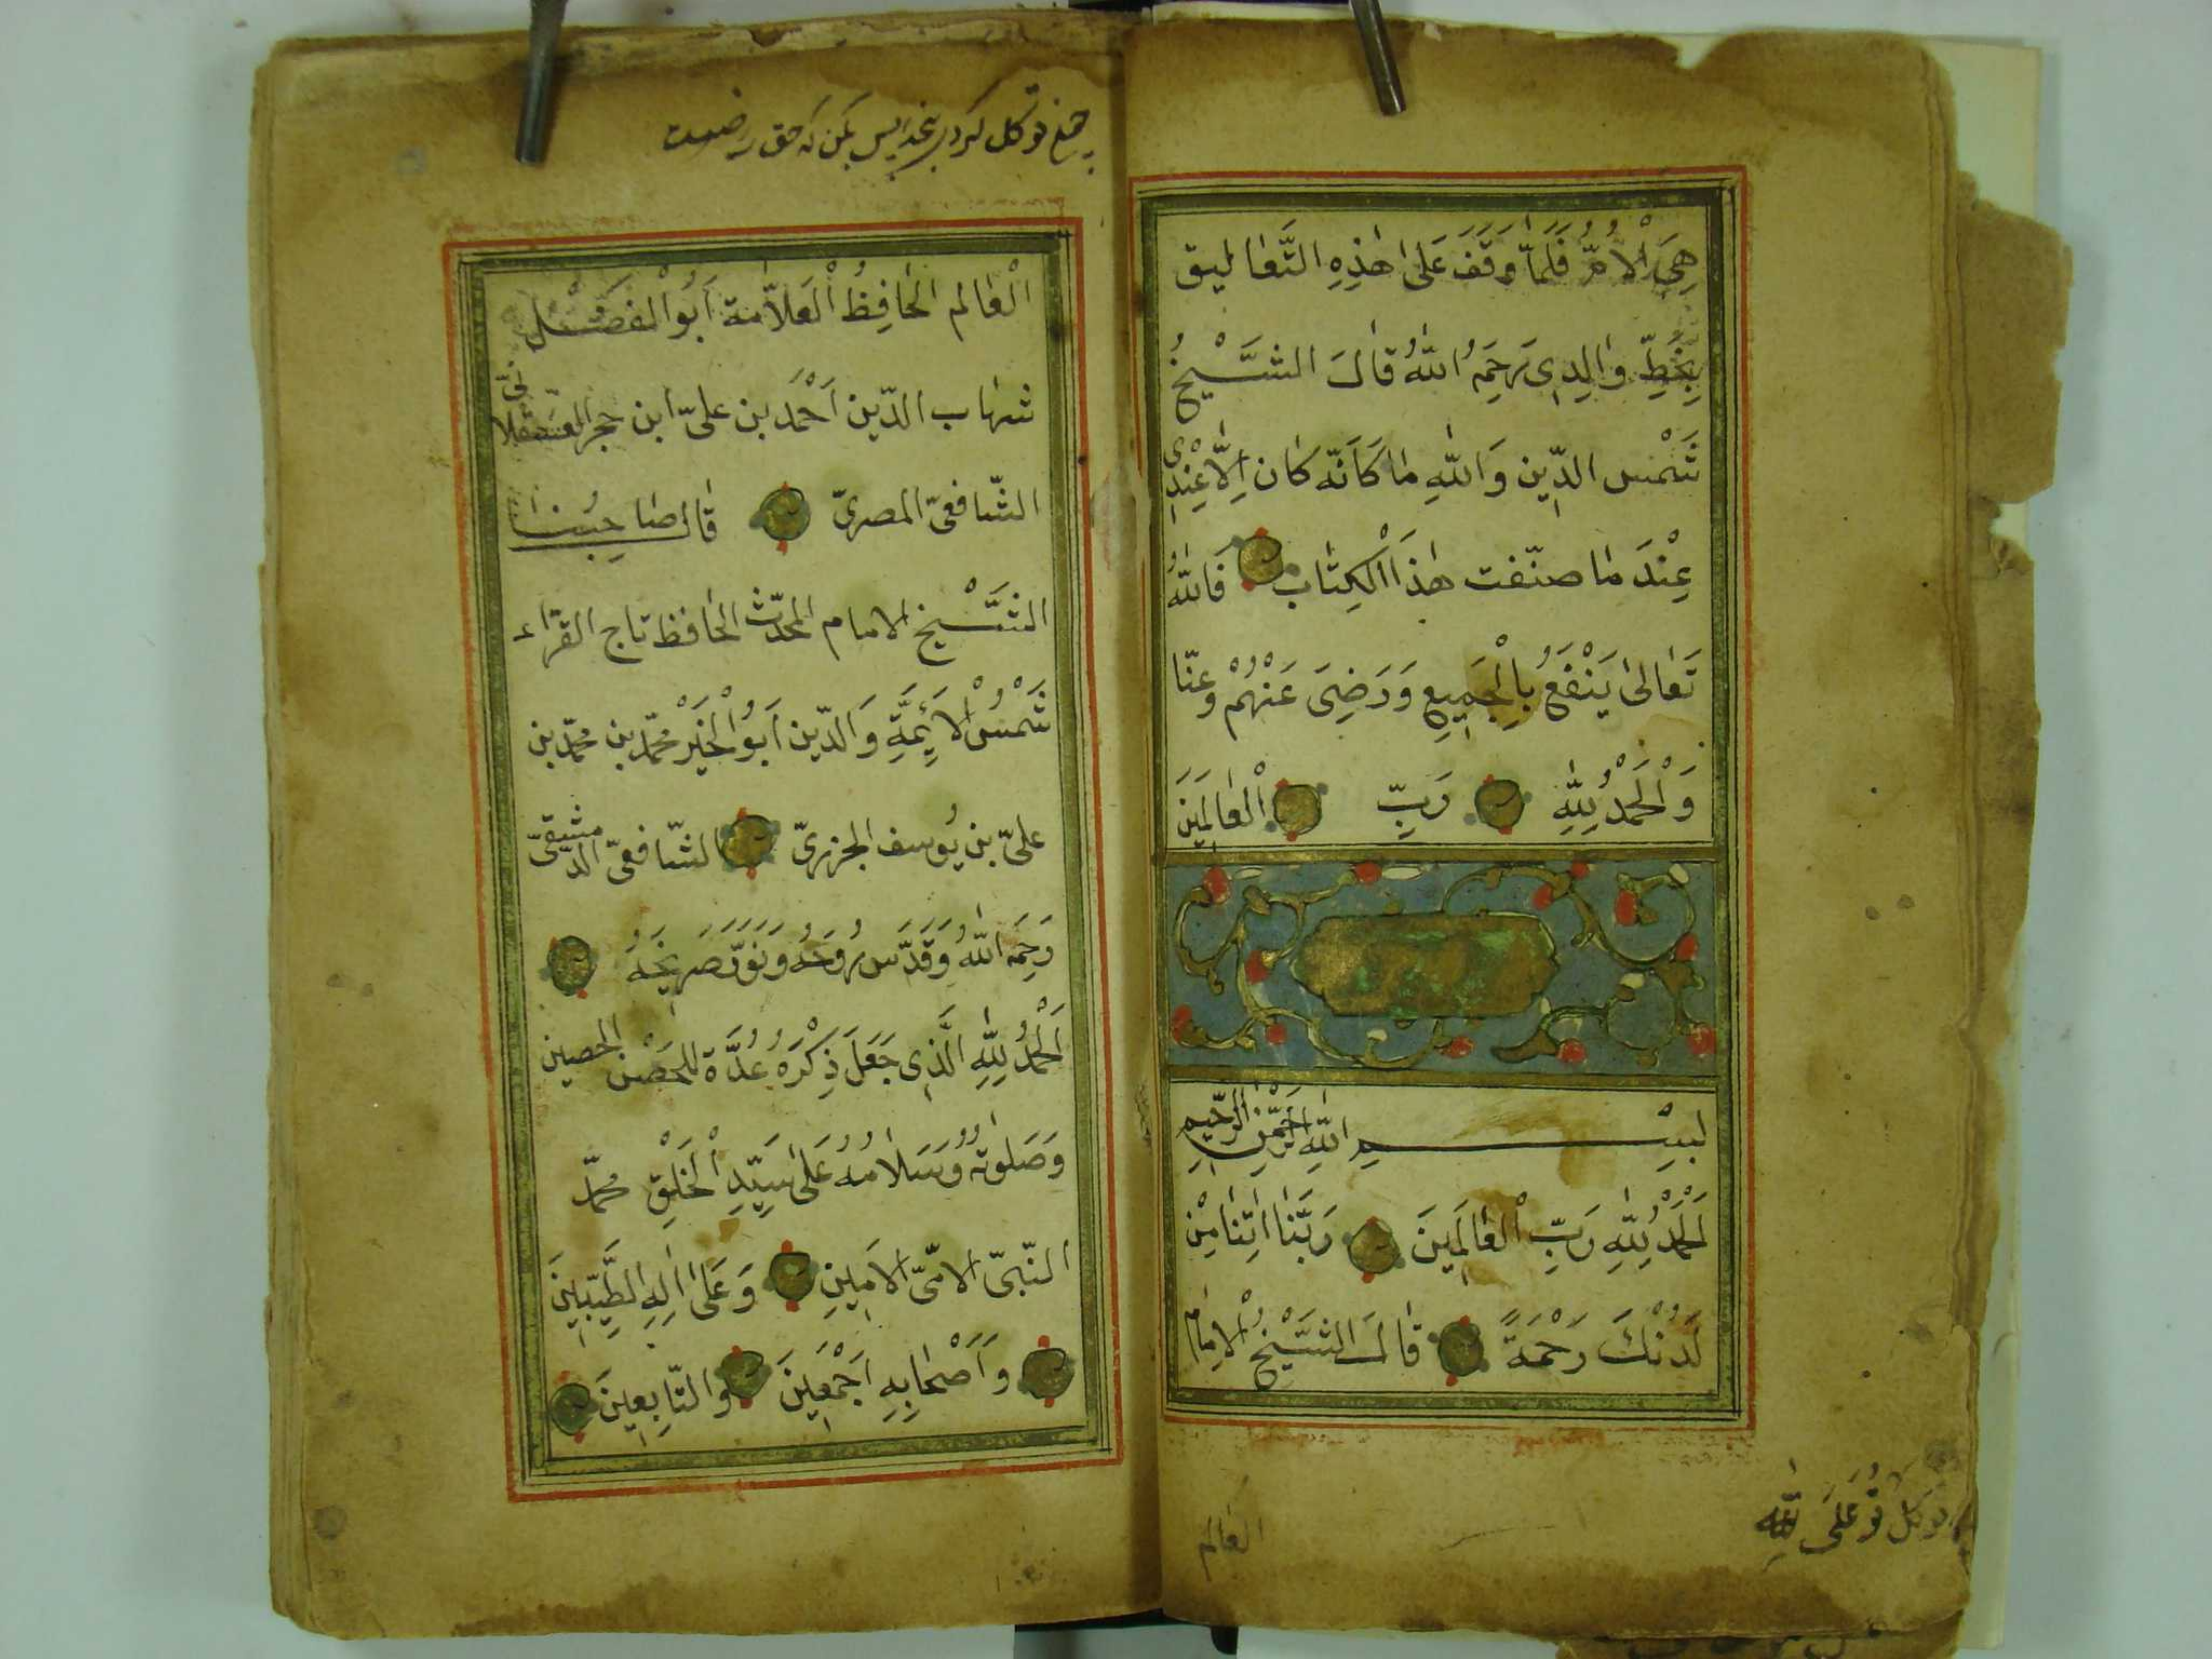 هِيَ الْاُمُّ فَلَمَّا وَقَفَ عَلٰى هٰذِهِ التَّعٰاليق
بِخَطِّ وٰالِدِى رَحِمَهُ اللّٰهُ قٰالَ الشَّيْخُ
شَمْس الدِّين وَاللّٰهِ مٰا كَاَنَّه كٰان اِلّٰا عِنْدِى
عِنْدَ مٰا صنّفت هٰذَا الْكِتٰاب فَاللّٰهُ
تَعٰالىٰ يَنْفَعُ بِالْجَمِيعِ وَرَضِىَ عَنْهُمْ وعنّا
وَالْحَمْدُ لِلّٰهِ رَبِّ الْعٰالَمِينَ
بِسْمِ اللّٰهِ الرَّحْمٰنِ الرَّحِيمِ
اَلْحَمْدُ لِلّٰهِ رَبِّ الْعٰالَمِينَ رَبَّنٰا اٰتِنٰا مِنْ
لَدُنْكَ رَحْمَةً قٰالَ الشَّيْخُ الْاِمٰام
العٰالم
توكل تو على اللّٰه
توكل كردى بخدا بس بكن كه حق
الْعٰالم الحٰافِظُ الْعَلّٰامة اَبُو الْفَضْل
شهٰاب الدّين اَحْمَد بن علىّ ابن حجر العسقلانىّ
الشّافعىّ المصرىّ قٰال صٰاحِبُنٰا
الشَّيْخ الامام المحدّث الحٰافظ تاج القرّاء
شَمْسُ الْاَئِمَّةِ وَالدّين اَبُو الْخَيْر محمّد بن محمّد بن
علىّ بن يُوسف الجزرىّ الشّافعىّ الدّمشقىّ
رَحِمَهُ اللّٰهُ وَقَدَّسَ رُوحَهُ وَنَوَّرَ ضَرِيحَهُ
اَلْحَمْدُ لِلّٰهِ الَّذِى جَعَلَ ذِكْرَهُ عُدَّة للحِصْن الحصين
وَصَلٰوتُهُ وَسَلٰامُهُ عَلىٰ سَيِّدِ الْخَلْقِ محمّد
النّبىّ الامّىّ الْاَمِينِ وَعَلىٰ اٰلِهِ الطَّيِّبِينَ
وَاَصْحٰابِهِ اَجْمَعِينَ والتّابِعِينَ